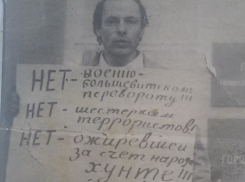 НЕТ - ВОЕННО-
БОЛЬШЕВИТСКОМУ
ПЕРЕВОРОТУ!!!
НЕТ - ШЕСТЕРКАМ
ТЕРРОРИСТОВ!
НЕТ - ОЖИРЕВШЕЙ
ЗА СЧЕТ НАРОДА
ХУНТЕ!!!